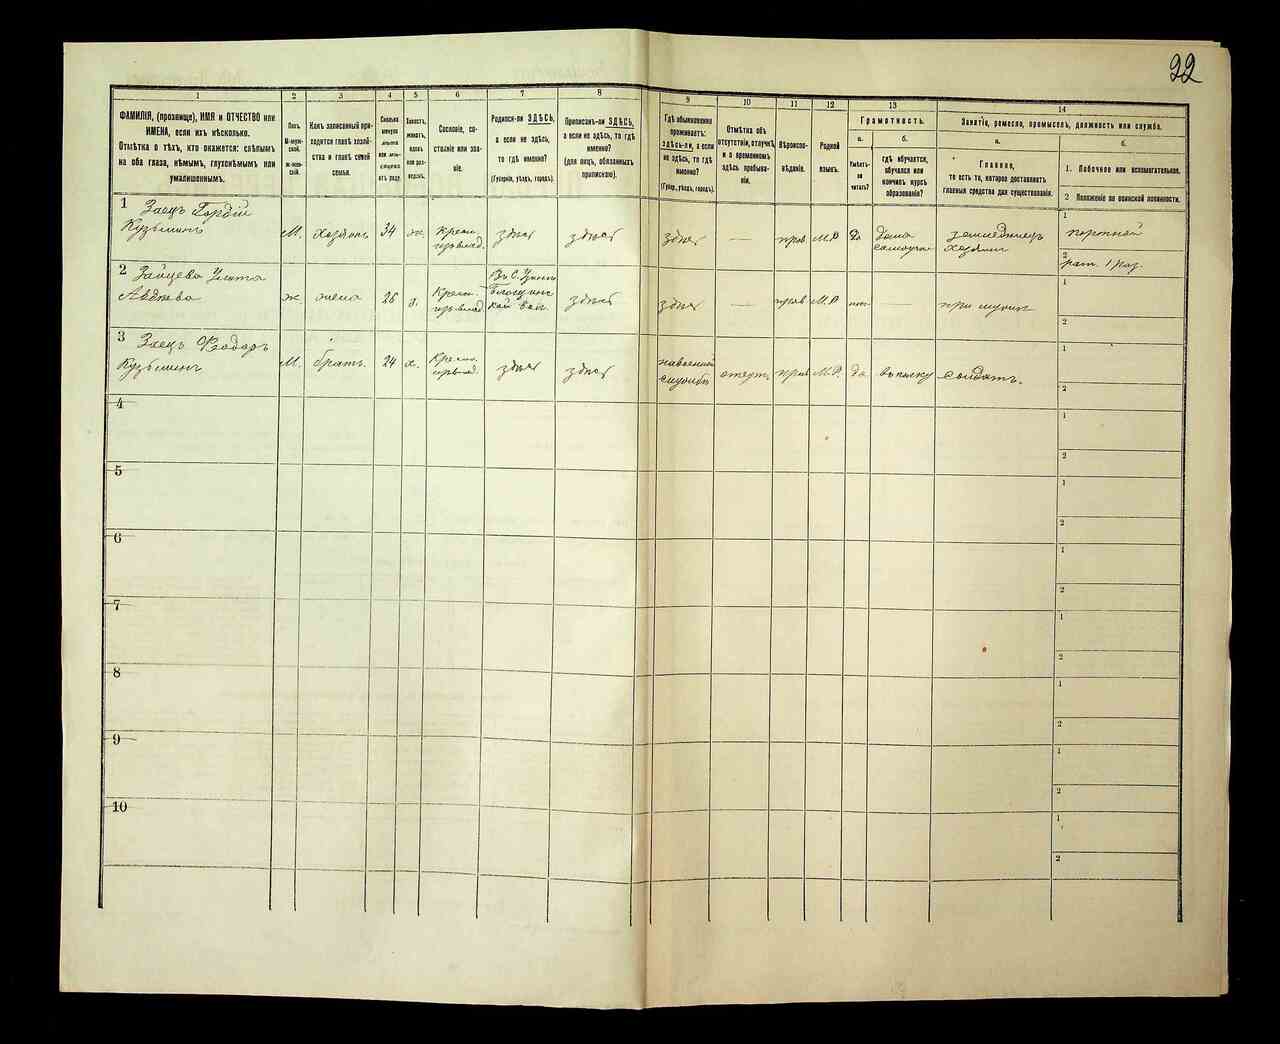 22
1 2 3 4 5 6 7 8 9 10 11 12 13 14
ФАМИЛІЯ, (прозвище), ИМЯ и ОТЧЕСТВО или
ИМЕНА, если ихъ нѣсколько.
Отмѣтка о тѣхъ, кто окажется: слѣпымъ
на оба глаза, нѣмымъ, глухонѣмымъ или
умалишеннымъ.
Полъ.
М-муж-
ской.
ж-жен-
скій.
Какъ записанный при-
ходится главѣ хозяй-
ства и главѣ своей
семьи.
Сколько
минуло
лѣтъ
или мѣся-
цевъ
отъ роду.
Холостъ,
женатъ,
вдовъ
или раз-
веденъ.
Сословіе, со-
стояніе или зва-
ніе.
Родился-ли ЗДѢСЬ,
а если не здѣсь,
то гдѣ именно?
(Губернія, уѣздъ, городъ).
Приписанъ-ли ЗДѢСЬ,
а если не здѣсь, то гдѣ
именно?
(для лицъ, обязанныхъ
припискою).
Гдѣ обыкновенно
проживаетъ:
здѣсь-ли, а если
не здѣсь, то гдѣ
именно?
(Губер., уѣздъ, городъ).
Отмѣтка объ
отсутствіи, отлучкѣ
и о временномъ
здѣсь пребыва-
ніи.
Вѣроиспо-
вѣданіе.
Родной
языкъ.
Грамотность.
а. б.
Умѣетъ-
ли
читать?
гдѣ обучается,
обучался или
кончилъ курсъ
образованія?
Занятіе, ремесло, промыселъ, должность или служба.
а. б.
Главное,
то есть то, которое доставляетъ
главныя средства для существованія.
1. Побочное или вспомогательное.
2 Положеніе по воинской повинности.
1 Заецъ Гордій
Кузьминъ
М. хозяинъ 34 ж. Крест.
изъ влад. здѣсь здѣсь здѣсь — прав М.Р да дома
самоучк земледѣлецъ
хозяинъ
1 портной
2 рат. 1 раз.
2 Зайцева Улита
Авдѣева
ж жена 26 з. Крест.
изъ влад.
здѣсь здѣсь — прав М.Р нт — при мужѣ
1
2
3 Заецъ Ѳеодоръ
Кузьминъ
М. братъ 24 х. Крест.
изъ влад. здѣсь здѣсь на военной
службѣ отсут. прав М.Р. да въ полку солдатъ.
1
2
4
1
2
5
1
2
6
1
2
7
1
2
8
1
2
9
1
2
10
1
2